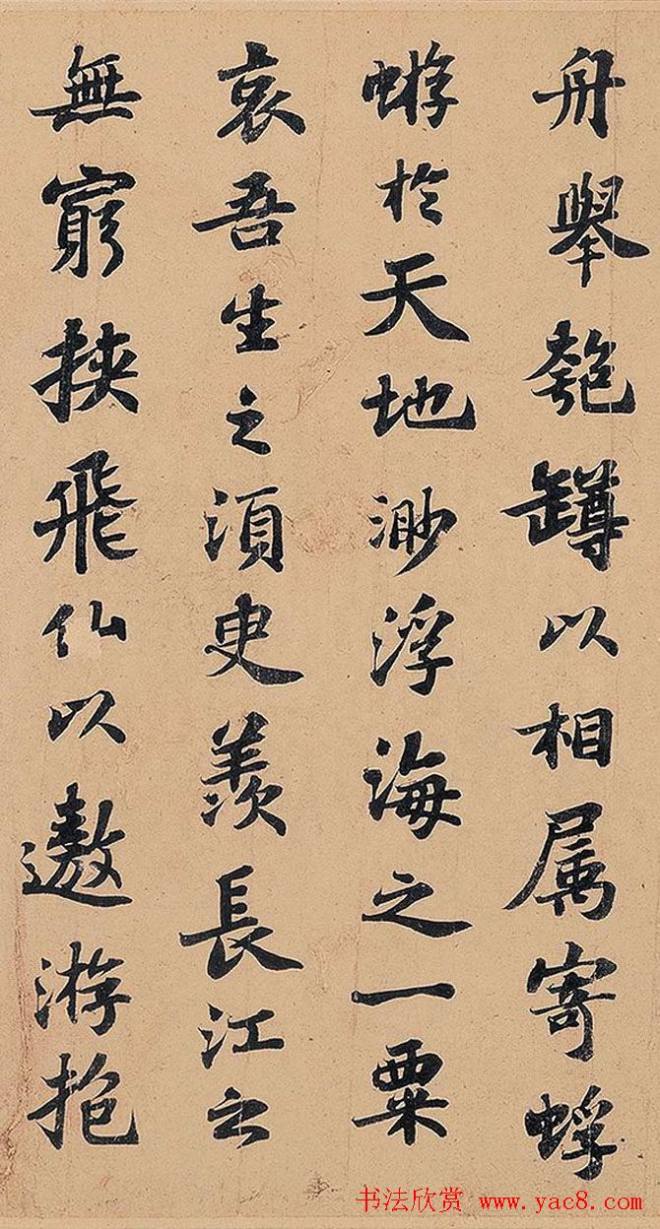 舟舉匏罇以相属寄蜉
蝣於天地渺浮海之一粟
哀吾生之須臾羨長江之
無窮挟飛仙以遨游抱
书法欣赏 www.yac8.com